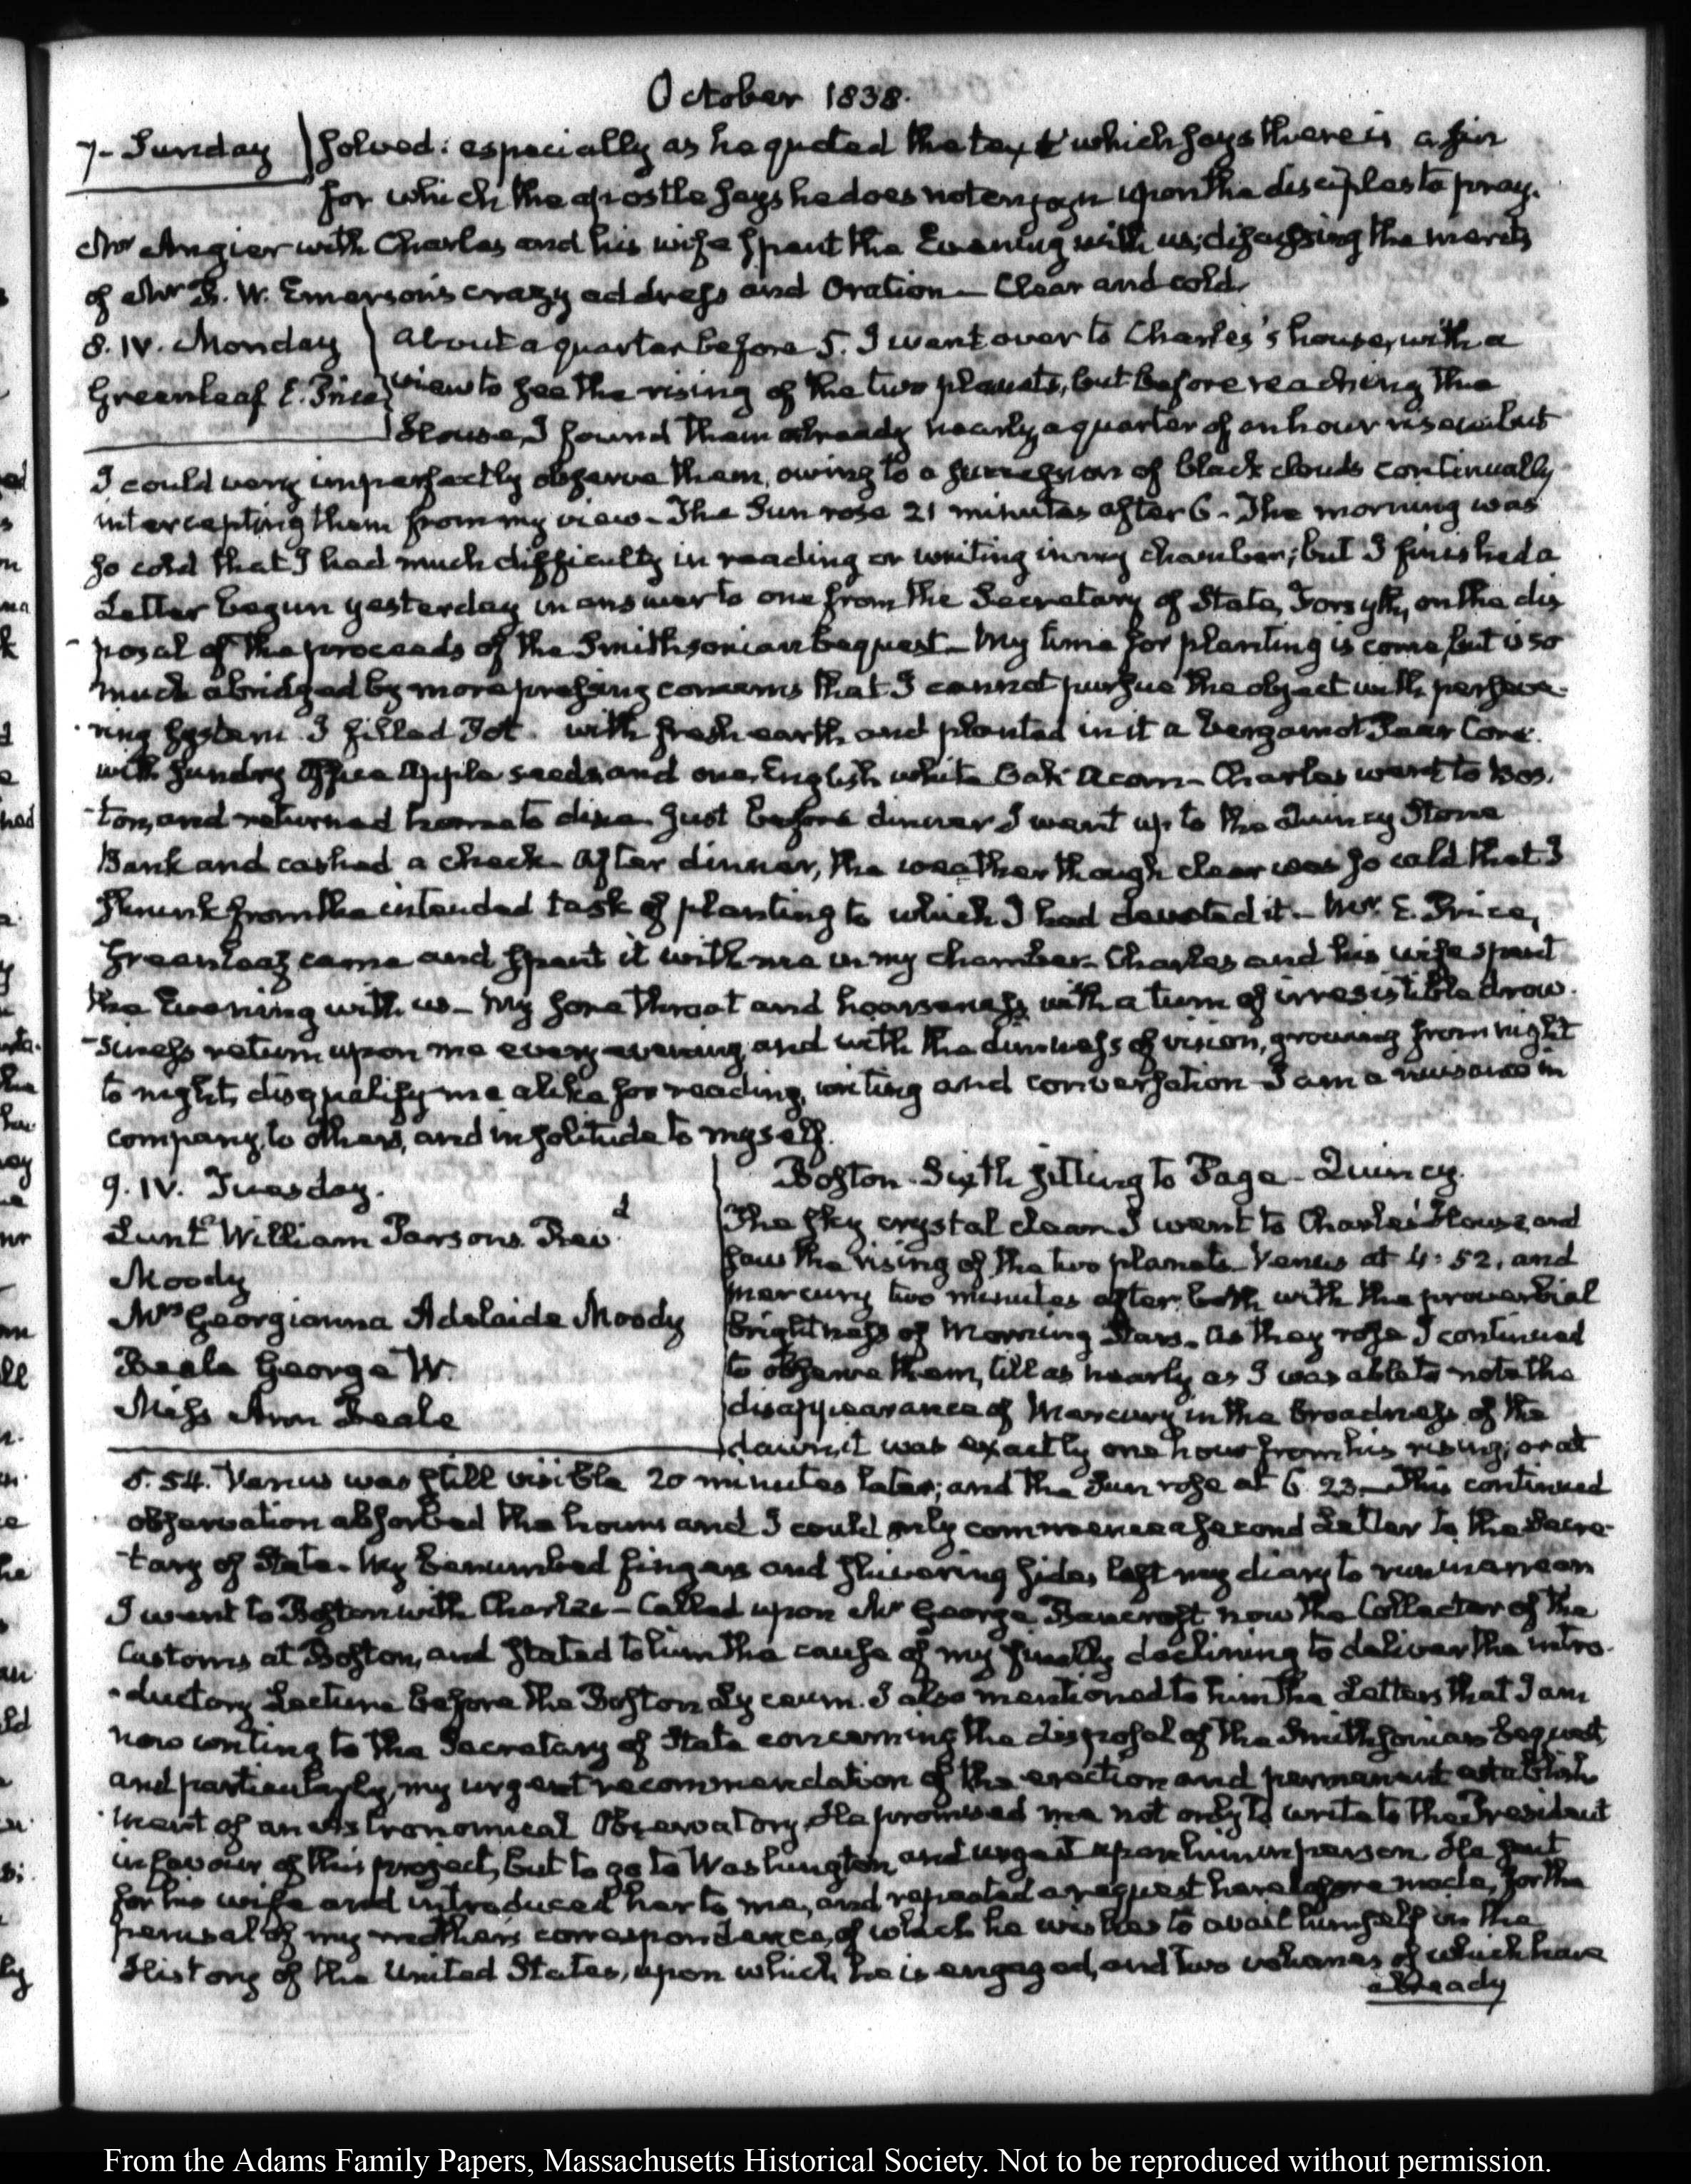 October 1838.
7. Sunday
solved: especially as he quoted the text which says there is a sin
for which the apostle says he does not enjoyn upon the disciples to pray.
Mr Angier with Charles and his wife spent the Evening with us; discussing the merits
of Mr R. W. Emerson's crazy address and Oration — Clear and cold.
8. IV. Monday
Greenleaf E. Price
About a quarter before 5. I went over to Charles's house, with a
view to see the rising of the two planets, but before reaching the
House, I found them already nearly a quarter of an hour risen but
I could very imperfectly observe them, owing to a succession of black clouds continually
intercepting them from my view. The Sun rose 21 minutes after 6. The morning was
so cold that I had much difficulty in reading or writing in my chamber; but I finished a
Letter begun yesterday in answer to one from the Secretary of State, Forsyth, on the dis
-posal of the proceeds of the Smithsonian bequest — My time for planting is come, but is so
much abridged by more pressing concerns that I cannot pursue the object with perseve-
-ring system I filled Pot with fresh earth and planted in it a bergamot Pear Core.
with sundry Apple seeds and one English white Oak Acorn — Charles went to Bos.
-ton, and returned home to dine. Just before dinner I went up to the Quincy Stone
Bank and cashed a check. After dinner, the weather though clear was so cold that I
shrunk from the intended task of planting to which I had devoted it. Mr. E. Price,
Greenleaf came and spent it with me in my chamber. Charles and his wife spent
the Evening with us — My sore throat and hoarseness with a turn of irresistible drow-
-siness return upon me every evening, and with the dimness of vision, growing from night
to night, disqualify me alike for reading, writing and conversation I am a nuisance in
company, to others, and in solitude to myself.
9. IV. Tuesday.
Lunt William Parsons Revd
Moody
Mrs Georgianna Adelaide Moody
Beale George W.
Miss Ann Beale
Boston — Sixth sitting to Page — Quincy.
The sky crystal clear I went to Charles' House, and
saw the rising of the two planets. Venus at 4:52, and
Mercury two minutes after, both with the proverbial
brightness of Morning Stars. As they rose I continued
to observe them, till as nearly as I was able to note the
disappearance of Mercury in the broadness of the
dawn, it was exactly one hour from his rising; or at
5.54. Venus was still visible 20 minutes later; and the Sun rose at 6. 23. — This continued
observation absorbed the hours and I could only commence a second Letter to the Secre-
-tary of State. My benumbed fingers and shivering sides left my diary to run in arrear
I went to Boston with Charles — Called upon Mr George Bancroft now the Collector of the
Customs at Boston, and stated to him the cause of my finally declining to deliver the intro-
-ductory Lecture before the Boston Lyceum. I also mentioned to him the Letters that I am
now writing to the Secretary of State concerning the disposal of the Smithsonian bequest,
and particularly, my urgent recommendation of the erection and permanent establish
-ment of an Astronomical Observatory. He promised me not only to write to the President
in favour of this project, but to go to Washington and urge it upon him in person. He sent
for his wife and introduced her to me, and repeated a request heretofore made, for the
perusal of my mother's correspondence, of which he wishes to avail himself in the
History of the United States, upon which he is engaged, and two volumes of which have
already
From the Adams Family Papers, Massachusetts Historical Society. Not to be reproduced without permission.